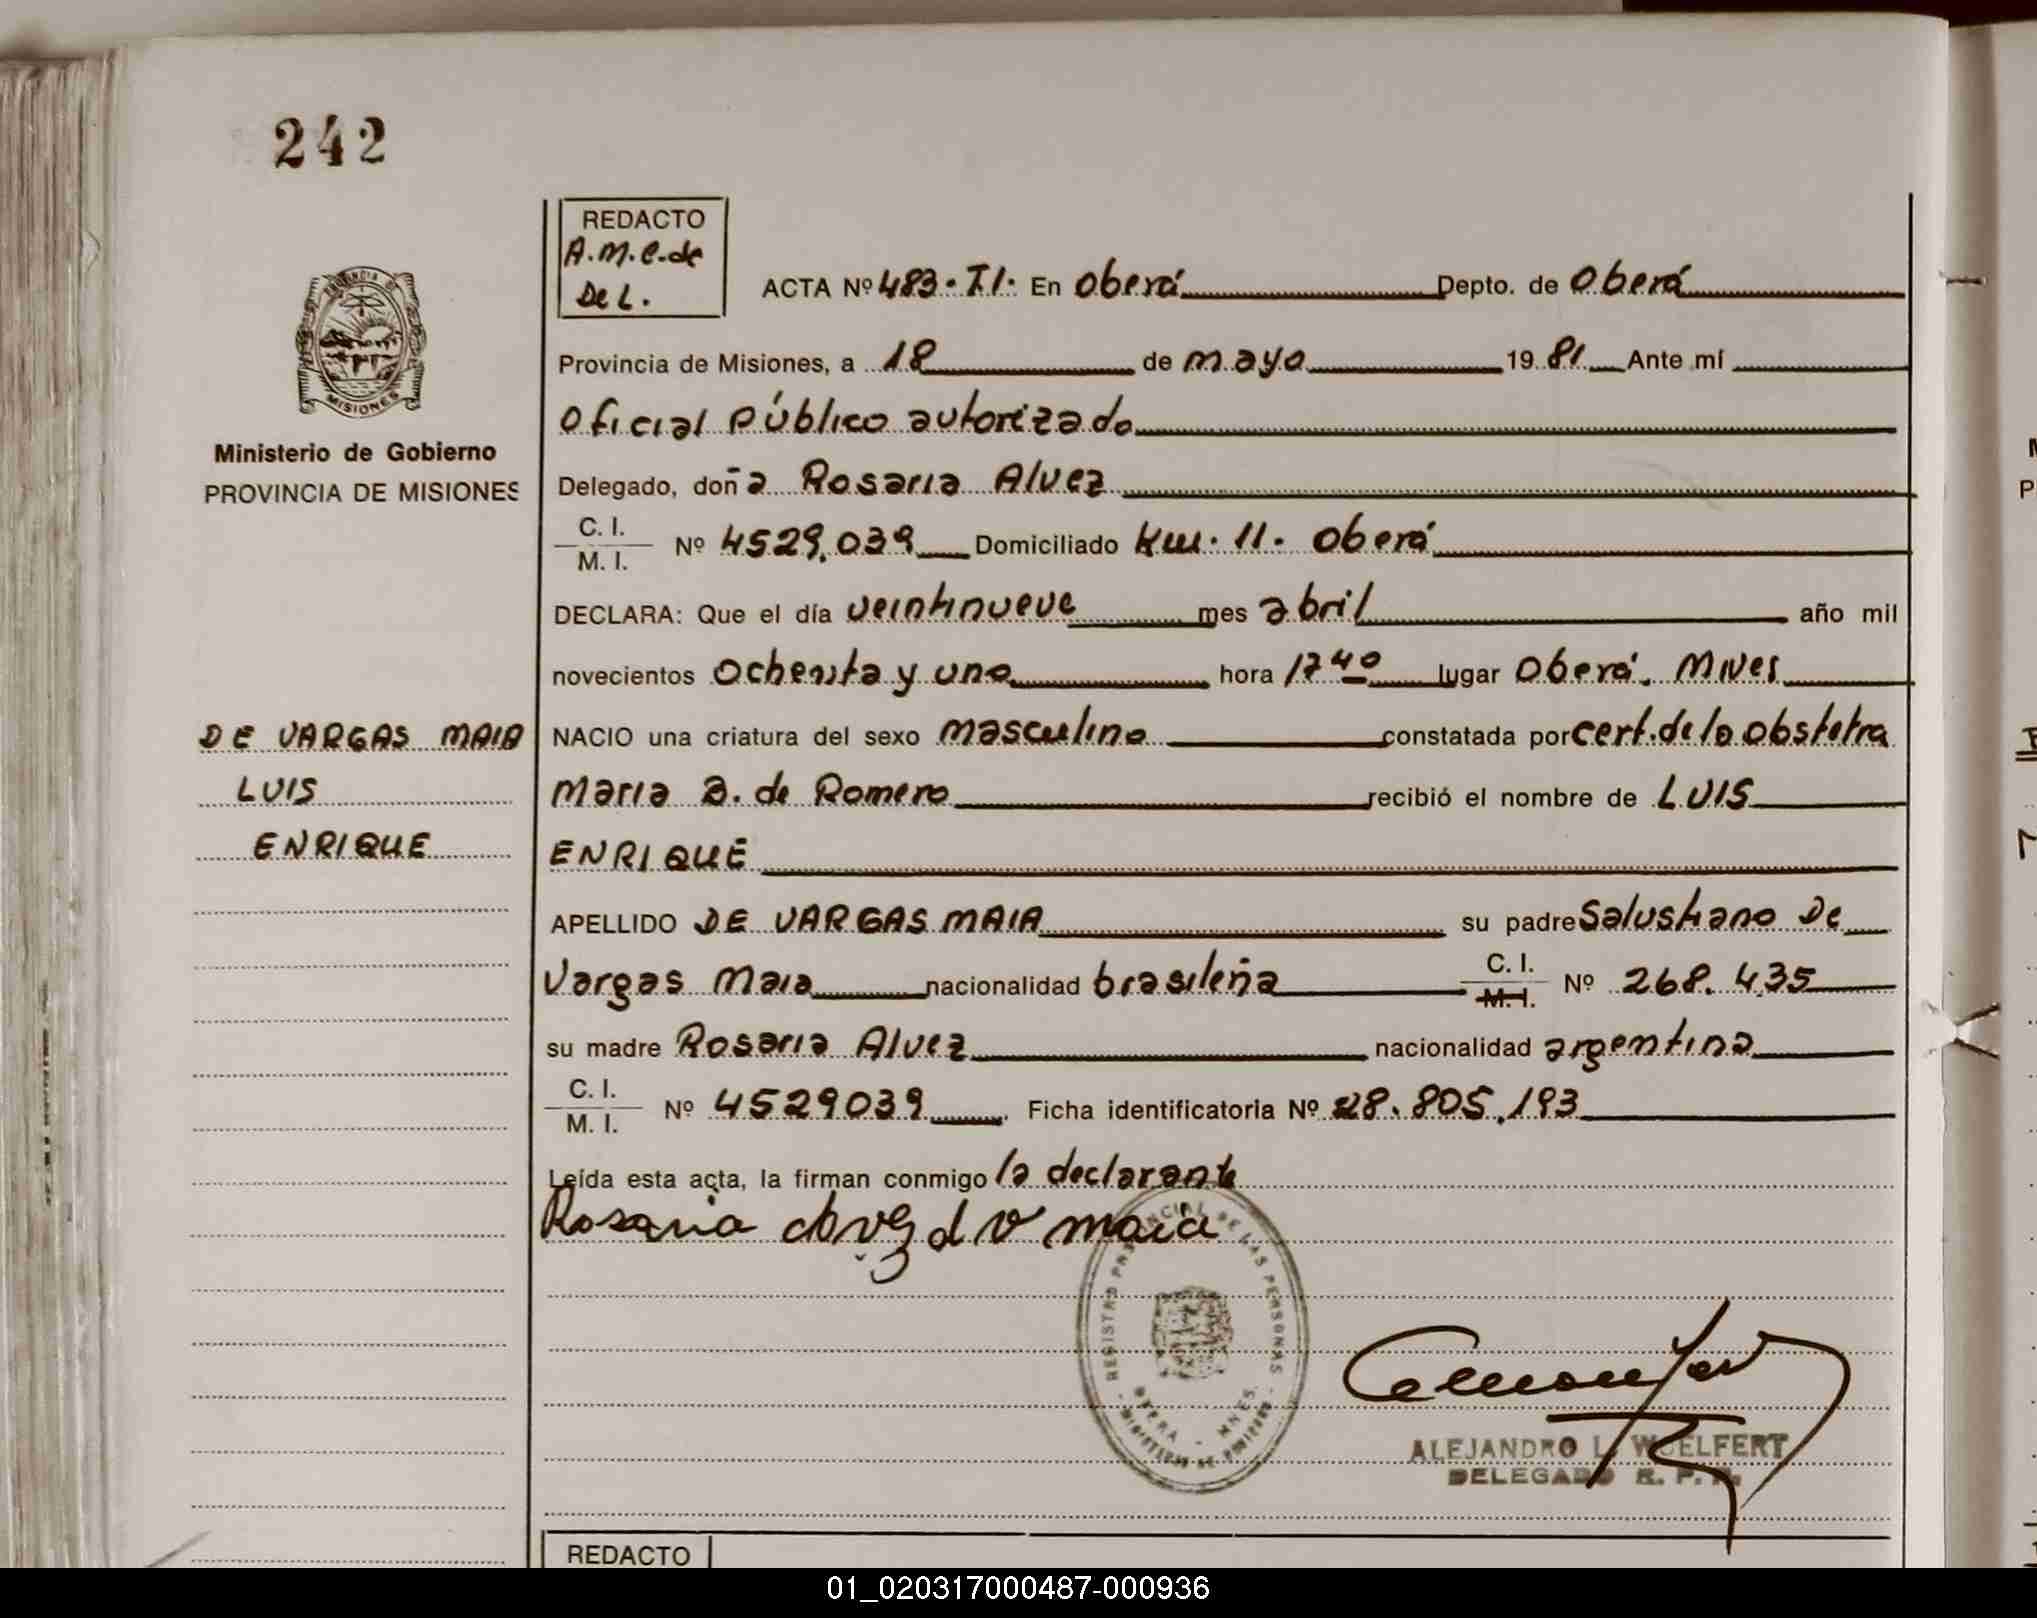 242
REDACTO
A.M.C. de
De L.
ACTA Nº 483. T.I. En Oberá Depto. de Oberá
Provincia de Misiones, a 18 de mayo 1981 Ante mí
Oficial Público autorizado
Delegado, doña Rosaria Alvez
C. I.
M. I. Nº 4529.039 Domiciliado Km. 11. Oberá
DECLARA: Que el día veintinueve mes abril año mil
novecientos ochenta y uno hora 17 40 lugar Oberá. Mnes
NACIO una criatura del sexo masculino constatada por cert. de la obstetra
Maria B. de Romero recibió el nombre de LUIS
ENRIQUE
APELLIDO DE VARGAS MAIA su padre Salustiano De
Vargas Maia nacionalidad brasileña C. I. M. I. Nº 268.435
su madre Rosaria Alvez nacionalidad argentina
C. I.
M. I. Nº 4529039. Ficha identificatoria Nº 28.805.193
Leída esta acta, la firman conmigo la declarante
Rosaria Alvez d V maia
PROVINCIA
MISIONES
Ministerio de Gobierno
PROVINCIA DE MISIONES
DE VARGAS MAIA
LUIS
ENRIQUE
REGISTRO PROVINCIAL DE LAS PERSONAS
OBERA - MNES.
MINISTERIO DE GOBIERNO
ALEJANDRO L. WUELFERT
DELEGADO R. P. P.
REDACTO
01_020317000487-000936